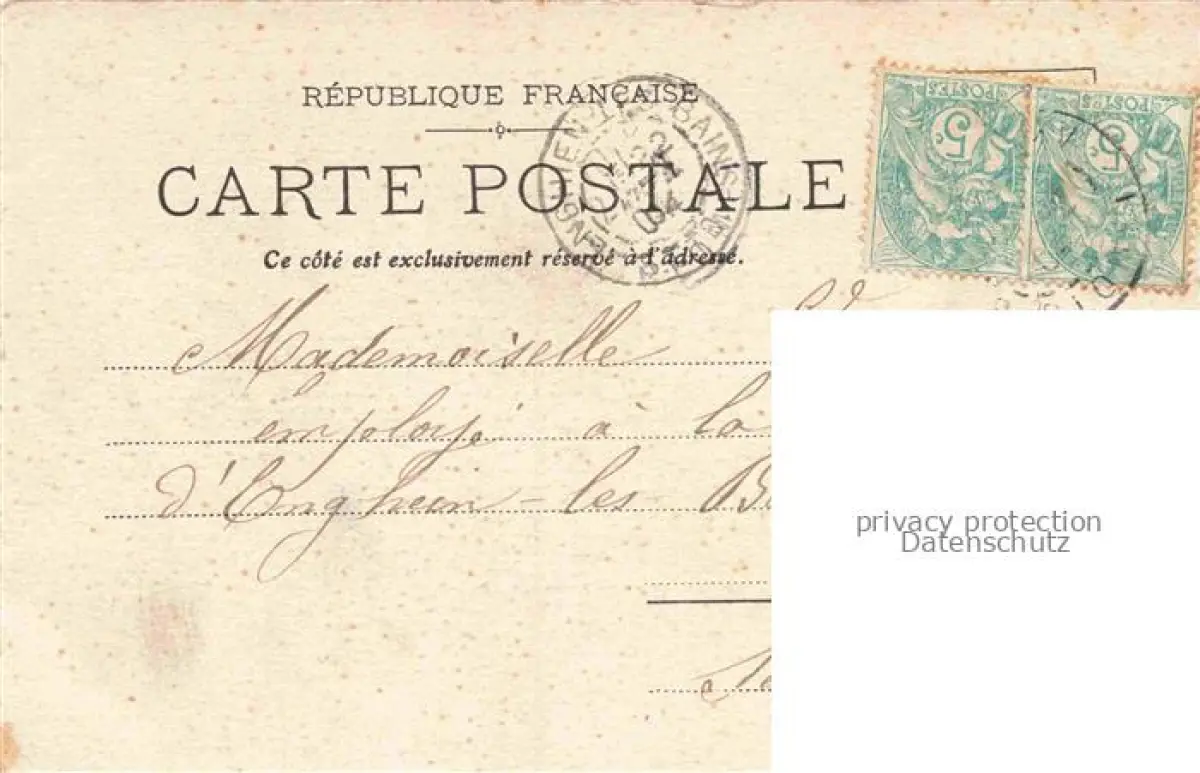 RÉPUBLIQUE FRANÇAISE
CARTE POSTALE
Ce côté est exclusivement réservé à l'adresse.
ENGHIEN-LES-BAINS
04
5 POSTES
5 POSTES
Mademoiselle
employé à la
d'Enghein-les-
privacy protection
Datenschutz